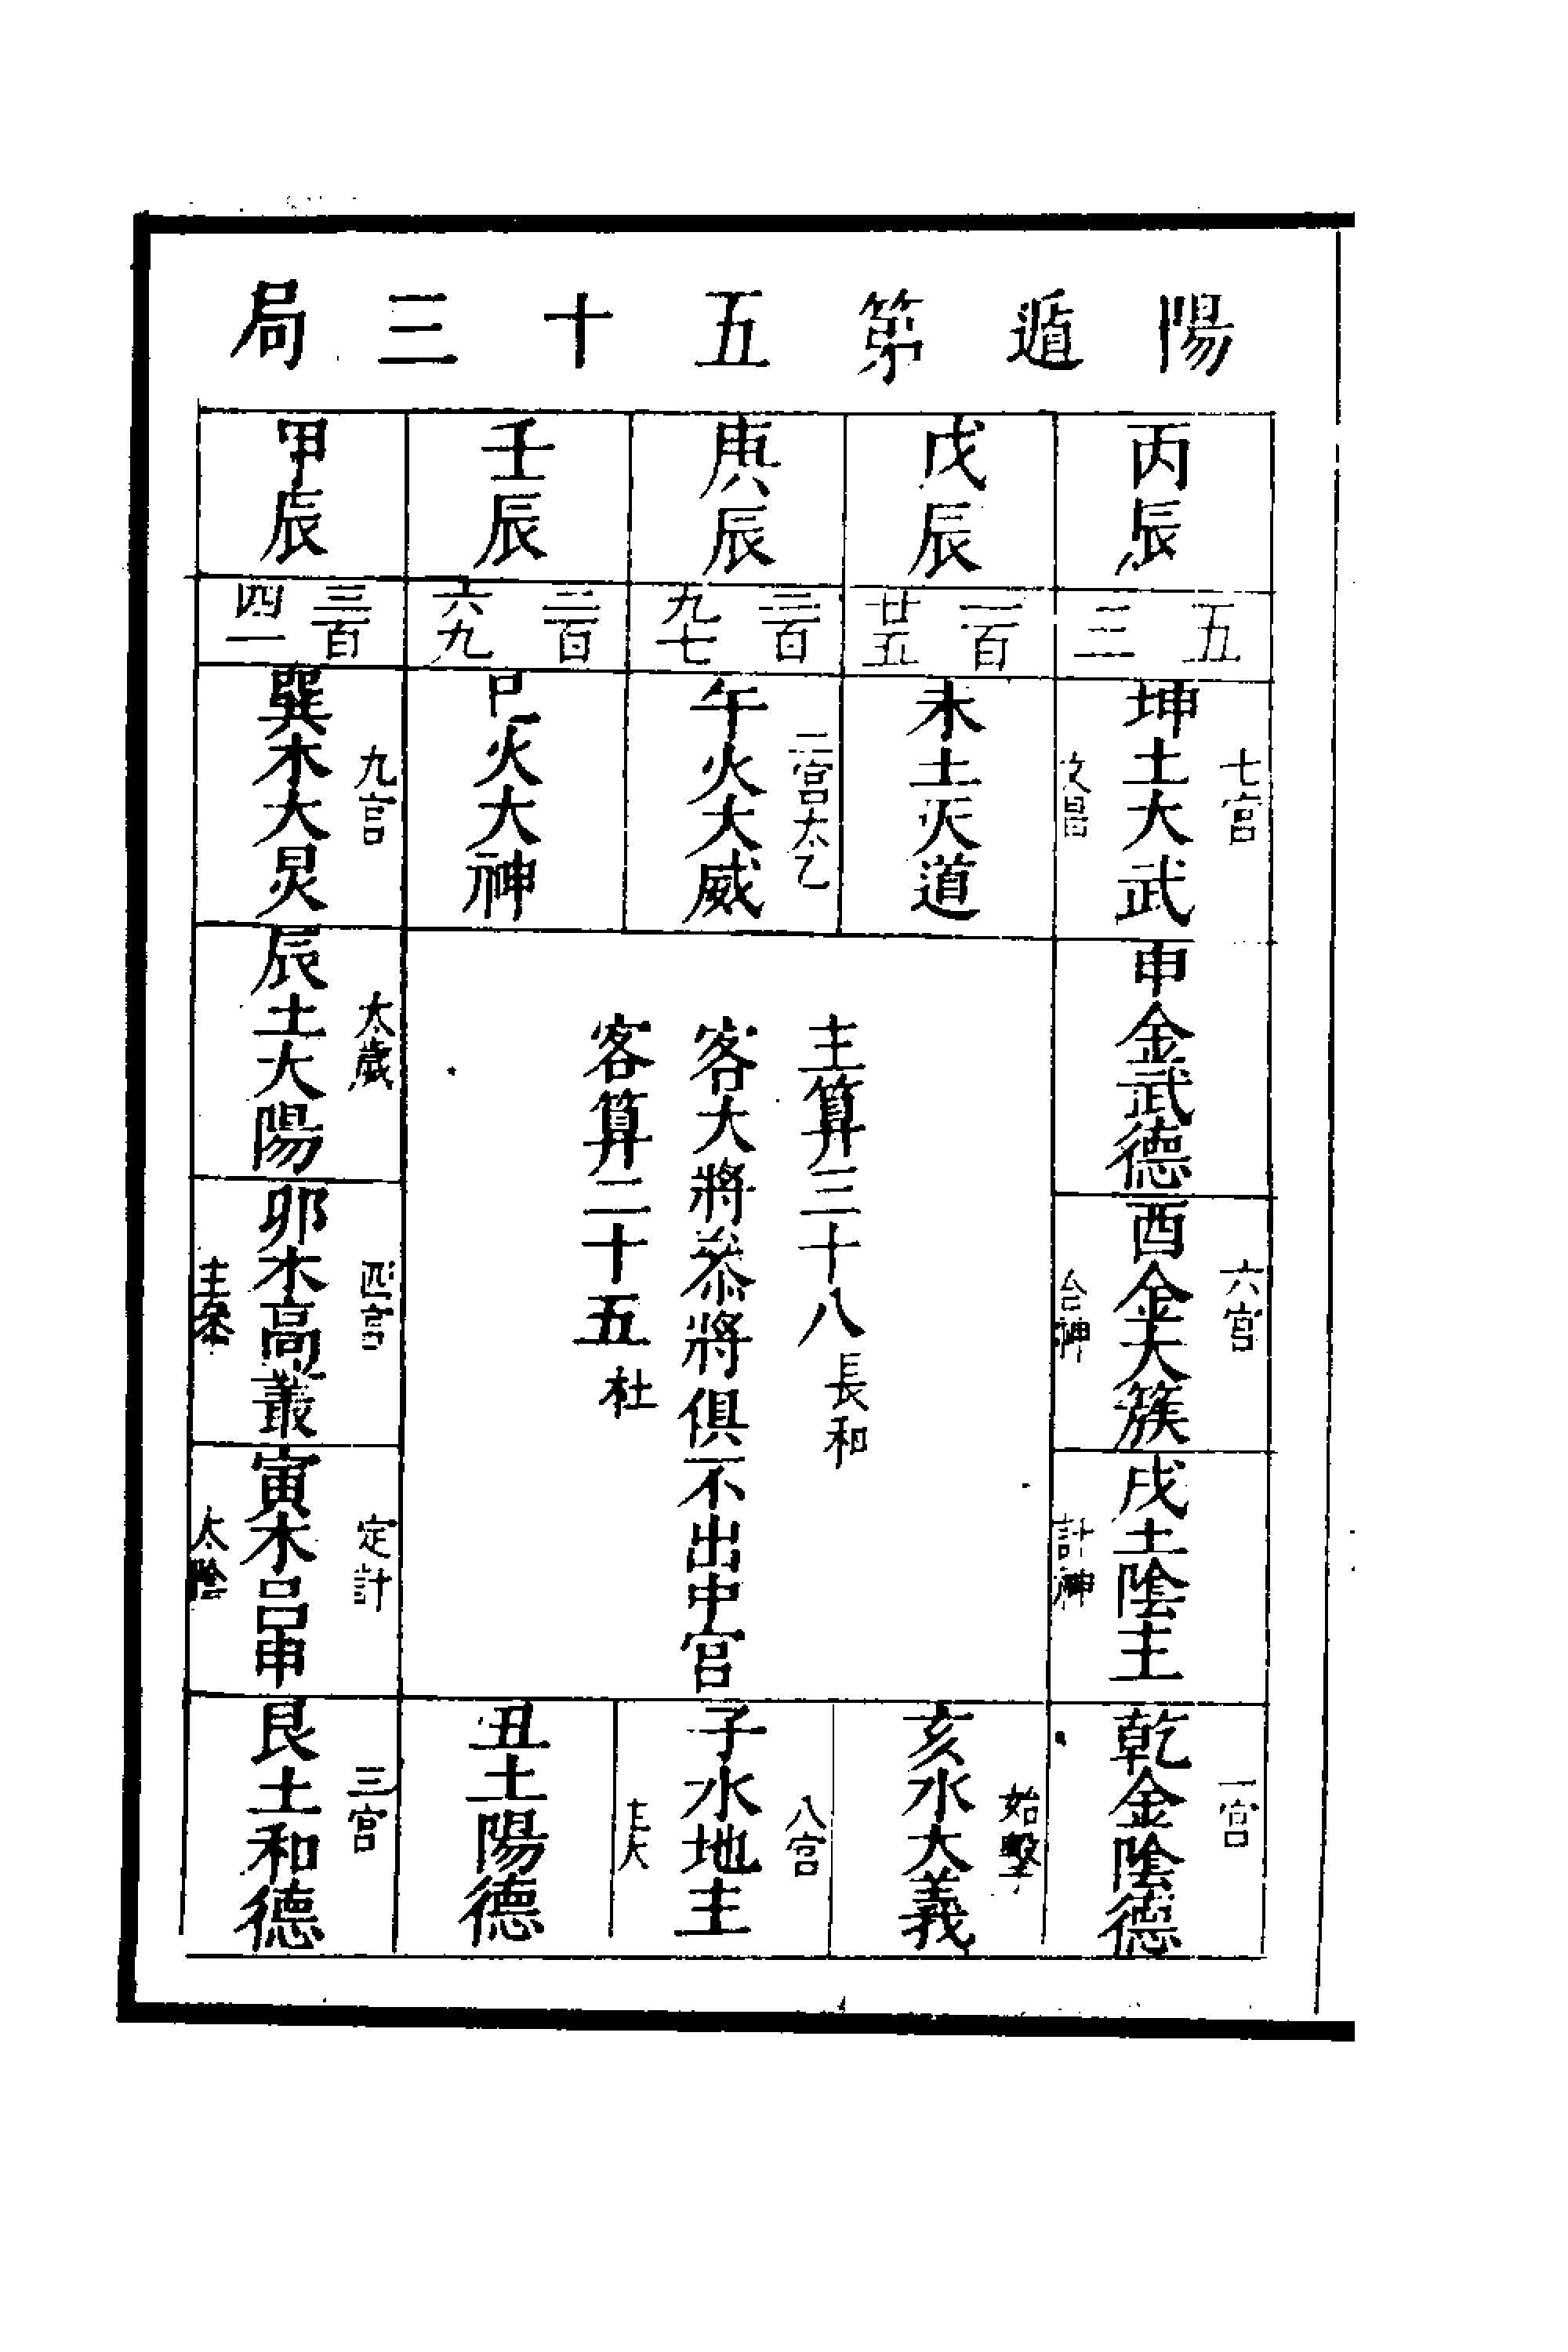 陽遁第五十三局
丙辰
戊辰
庚辰
壬辰
甲辰
五三
一百廿五
三百九七
二百六九
三百四一
七宮
坤土大武
文昌
未土天道
二宮太乙
午火大威
巳火大神
九宮
巽木大炅
申金武德
太歲
辰土大陽
六宮
酉金大簇
合神
主算三十八長和
客大將叅將俱不出中宮
客算二十五杜
四宮
卯木高叢
主叅
戌土陰主
計神
定計
寅木呂申
太陰
一宮
乾金陰德
始擊
亥水大義
八宮
子水地主
主大
丑土陽德
三宮
艮土和德